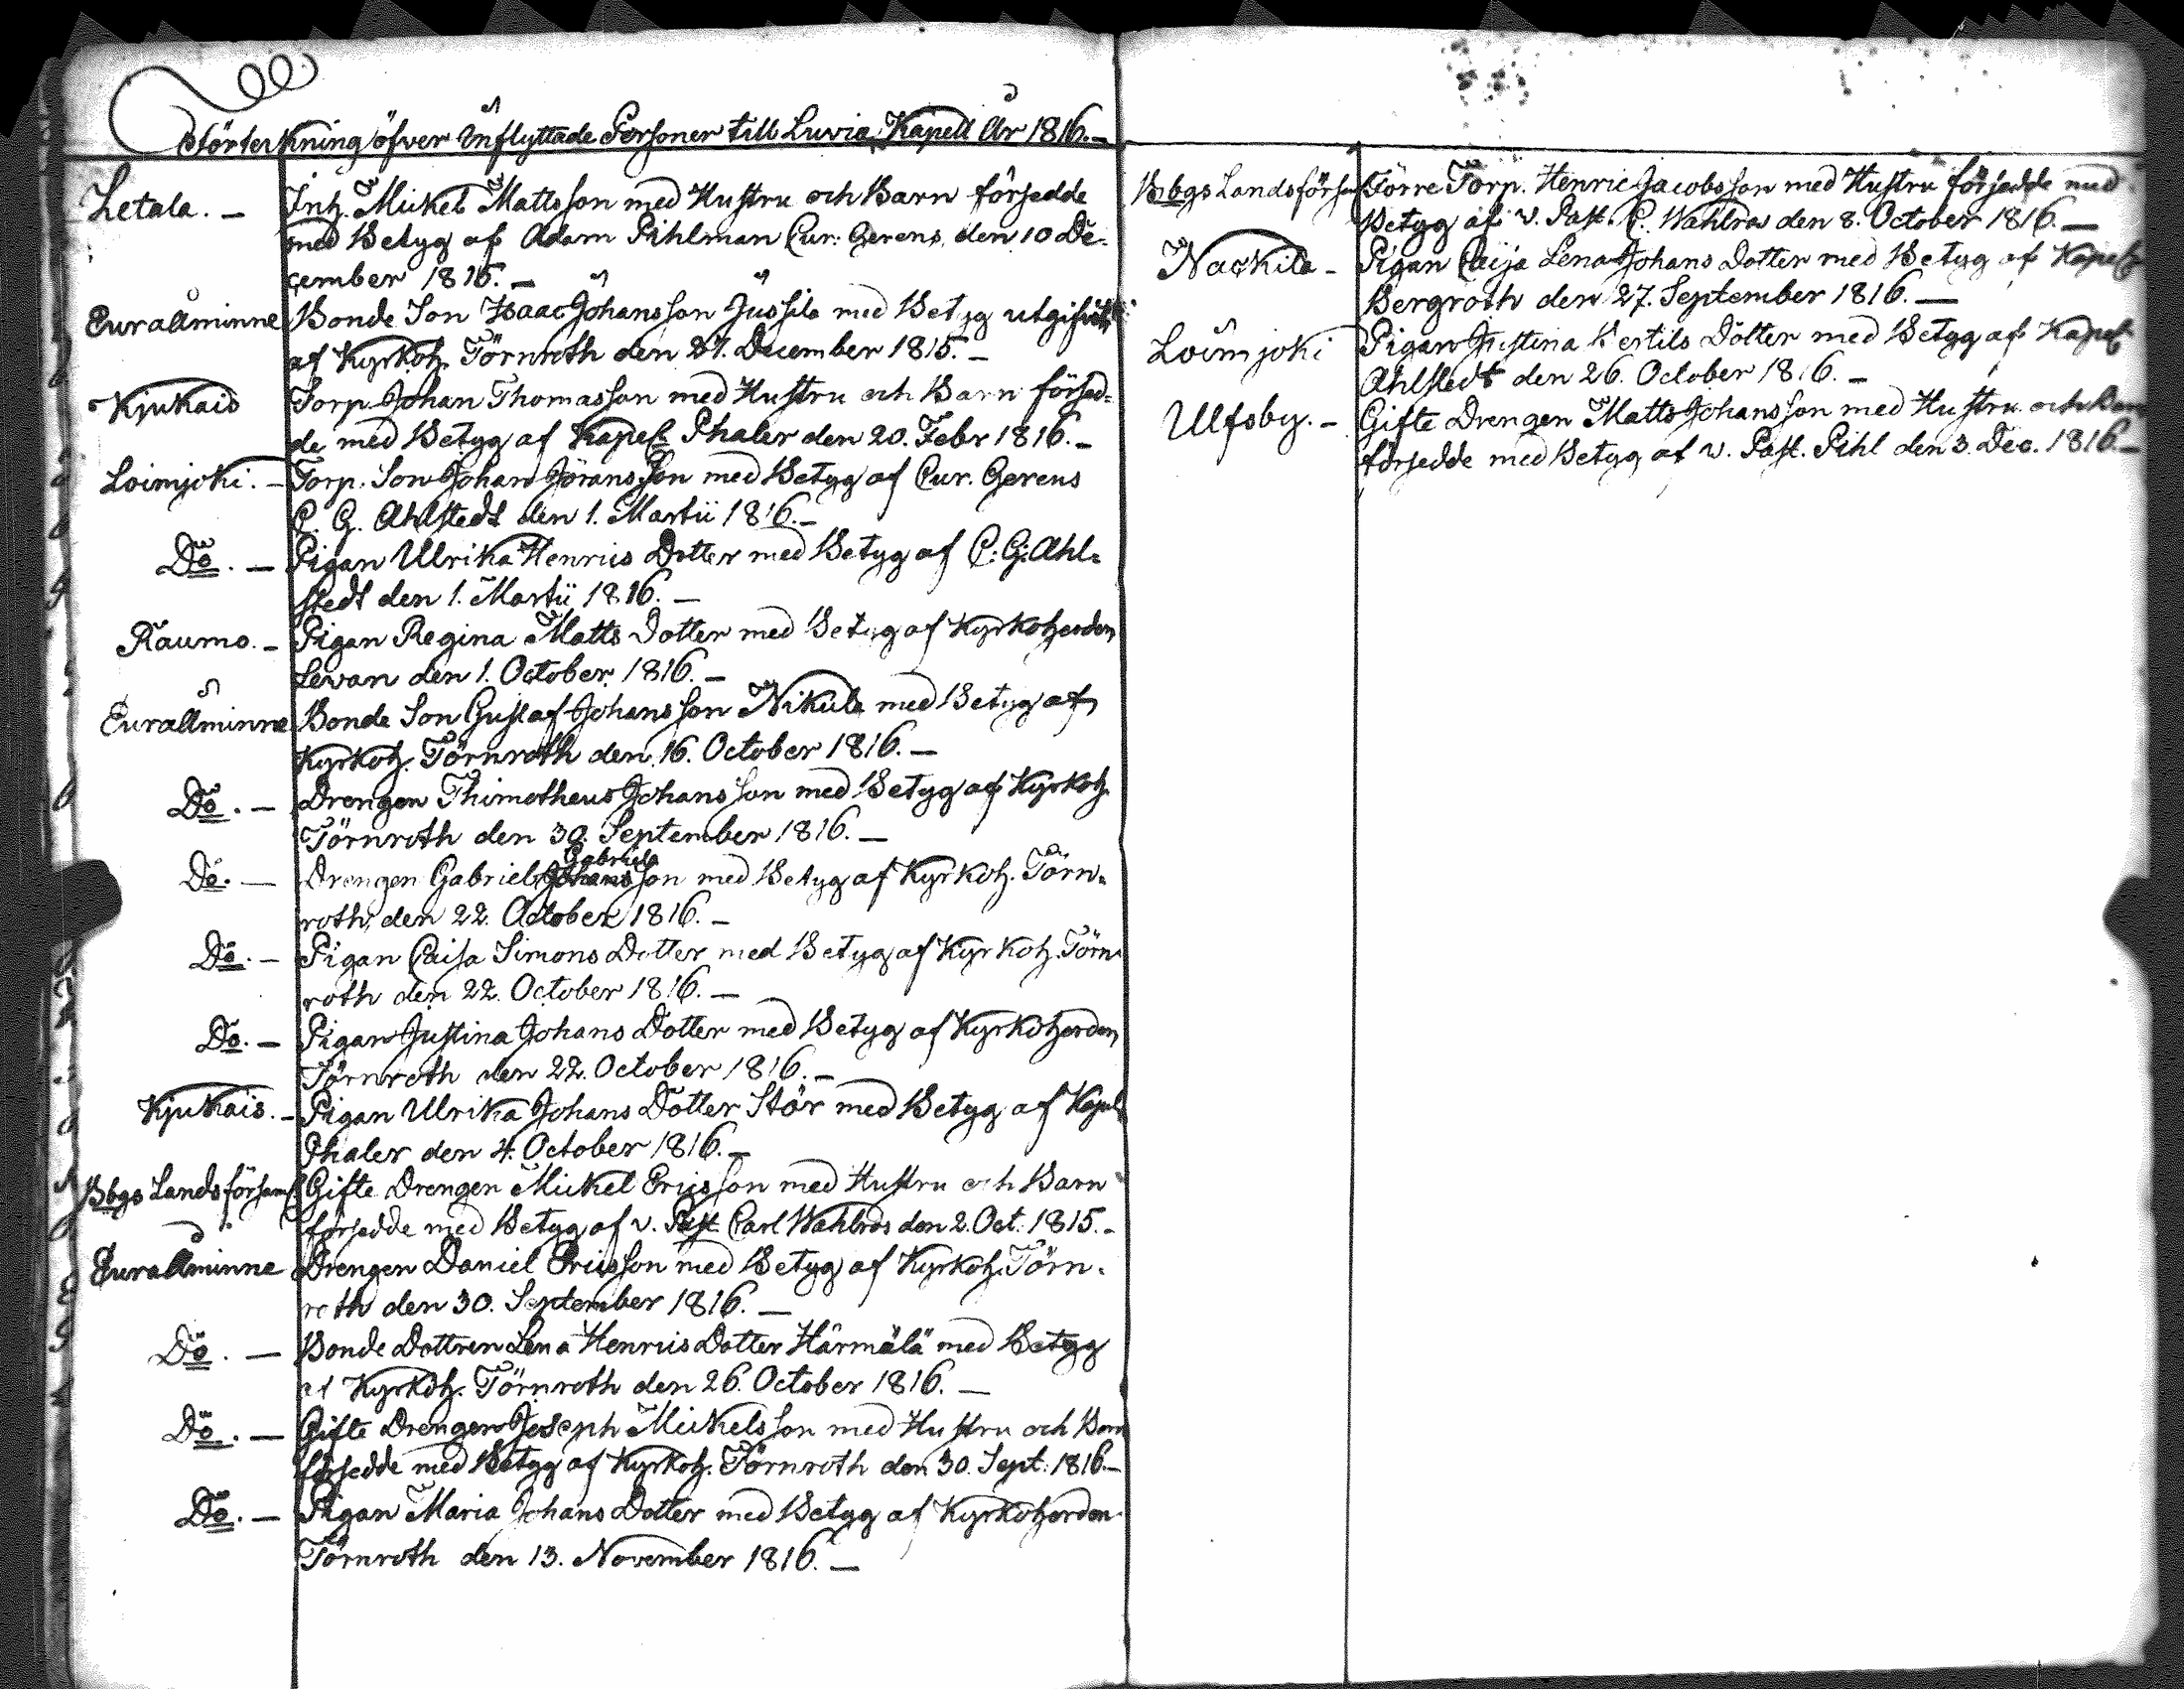 Förtekning öfver Inflyttade Personer till Luvia Kapell År 1816.-
Letala. - Inh. Mickel Mattsson med Hustru och Barn försedde
med Betyg af Adam Pihlman Cur: Gerens, den 10 De-
cember 1815. -
Eurallminne Bonde Son Isaac Johansson Jussila med Betyg utgifvit
af Kyrkoh. Törnroth den 27. December 1815. -
Kjukais Torp. Johan Thomasson med Hustru och Barn försed-
de med Betyg af Kapel. Phaler den 20. Febr 1816. -
Loimjoki. - Torp. Son Johan Jöransson med Betyg af Cur. Gerens
C. G. Ahlstedt den 1. Martii 1816. -
Do. - Pigan Ulrika Henrics Dotter med Betyg af C: G: Ahl-
stedt den 1. Martii 1816. -
Raumo. - Pigan Regina Matts Dotter med Betyg af Kyrkoherden
Levan den 1. October 1816. -
Eurallminne Bonde Son Gustaf Johansson Nikula med Betyg af
Kyrkoh. Törnroth den 16. October 1816. -
Do. - Drengen Thimotheus Johansson med Betyg af Kyrkoh.
Törnroth den 30. September 1816. -
Gabriels
Do. - Drengen Gabriel Johansson med Betyg af Kyrkoh. Törn-
roth, den 22. October 1816. -
Do. - Pigan Caisa Simons Dotter med Betyg af Kyrkoh. Törn-
roth den 22. October 1816. -
Do. - Pigan Justina Johans Dotter med Betyg af Kyrkoherden
Törnroth den 22. October 1816. -
Kjukais. - Pigan Ulrika Johans Dotter Stör med Betyg af Kapel
Phaler den 4. October 1816. -
Bbgs Landsförsaml. Gifte Drengen Mickel Ericsson med Hustru och Barn
försedde med Betyg af v. Past. Carl Wahlros den 2. Oct. 1815. -
Eurallminne Drengen Daniel Ericsson med Betyg af Kyrkoh. Törn-
roth den 30. September 1816. -
Do. - Bonde Dottren Lena Henrics Dotter Härmälä med Betyg
af Kyrkoh. Törnroth den 26. October 1816. -
Do. - Gifte Drengen Joseph Mickelsson med Hustru och Barn
försedde med Betyg af Kyrkoh. Törnroth den 30. Sept. 1816. -
Do. - Pigan Maria Johans Dotter med Betyg af Kyrkoherden
Törnroth den 13. November 1816. -
Bbgs Landsförsaml Förre Torp. Henric Jacobsson med Hustru försedde med
Betyg af v. Past. C. Wahlros den 8. October 1816. -
Nackila - Pigan Caija Lena Johans Dotter med Betyg af Kapel.
Bergroth den 27. September 1816. -
Loimjoki Pigan Justina Bertils Dotter med Betyg af Kapel
Ahlstedt den 26. October 1816. -
Ulfsby. - Gifte Drengen Matts Johansson med Hustru och Barn
försedde med Betyg af v. Past. Pihl den 3. Dec. 1816. -